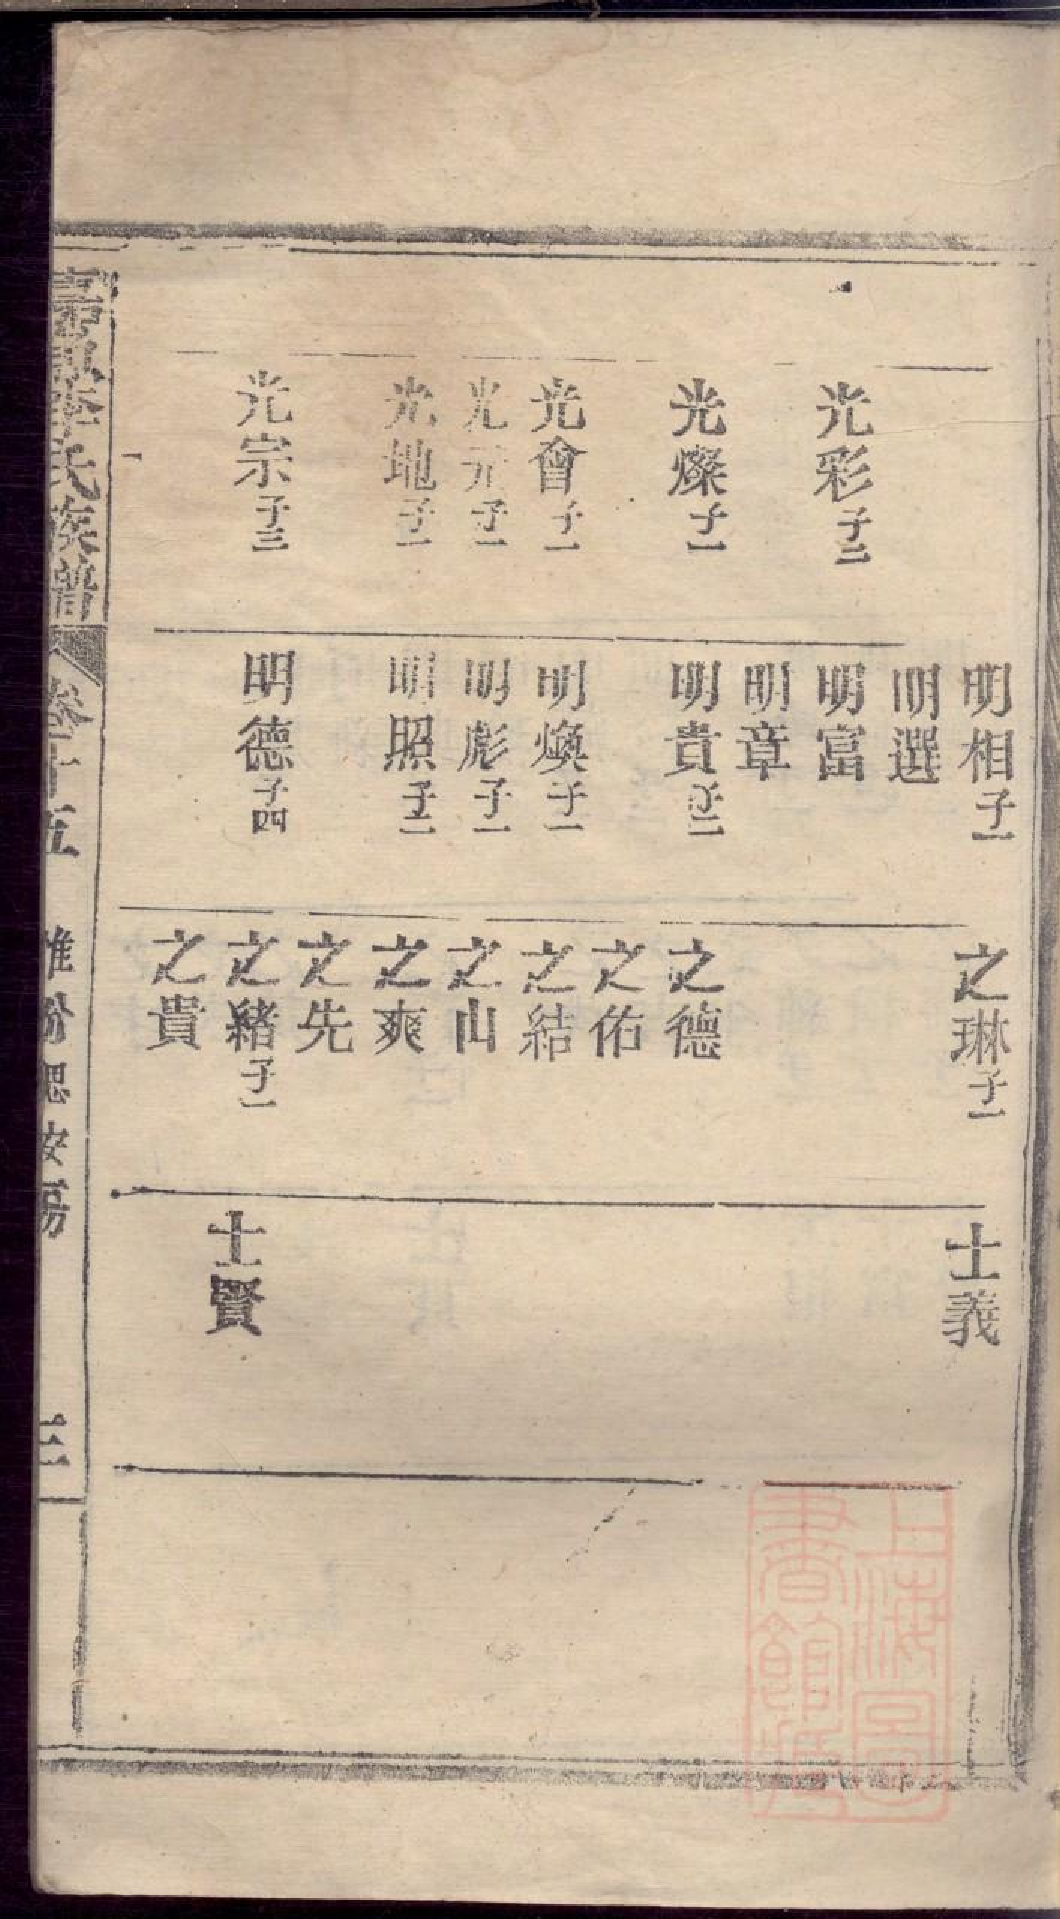 光彩子二
光燦子一
光會子一
光元子一
光地子一
光宗子三
明相子一
明選
明富
明章
明貴子二
明煥子一
明彪子一
明照子二
明德子四
之琳子一
之德
之佑
之結
之山
之爽
之先
之緒子一
之貴
士義
士賢
李氏族譜
卷十五
房
三
上海圖
書館藏